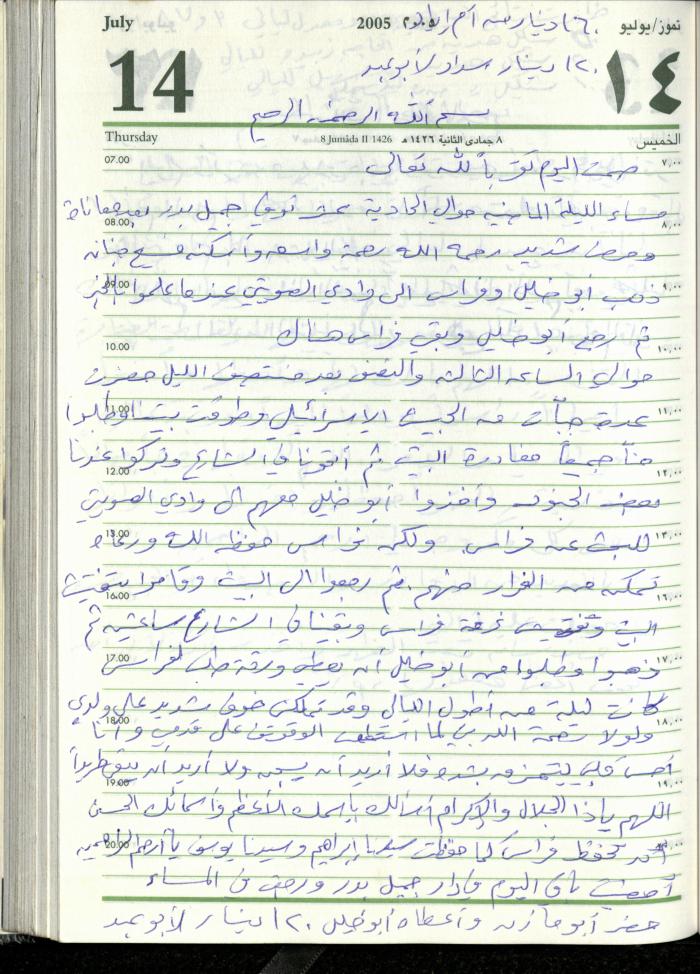 July
2005
تموز/يوليو
١٢٠ دينار سداد لأبو عبد
14
١٤
بسم الله الرحمن الرحيم
Thursday
8 Jumâda II 1426
٨ جمادى الثانية ١٤٢٦ هـ
الخميس
07.00 صمت اليوم تقرباً لله تعالى ٧,٠٠
مساء الليلة الماضية حوالي الحادية عشر توفي جميل بدر بعد معاناة
08.00 ٨,٠٠
ومرض شديد رحمه الله رحمة واسعة وأسكنه فسيح جنانه
09.00 ذهب أبو خليل وفراس الى وادي الصويتي عندما علموا بالخبر ٩,٠٠
ثم رجع أبو خليل وبقي فراس هناك
10.00 ١٠,٠٠
حوالي الساعة الثالثة والنصف بعد منتصف الليل حضرت
11.00 عدة جيبات من الجيش الإسرائيلي وطوقت بيتنا وطلبوا ١١,٠٠
منا جميعاً مغادرة البيت ثم أبقونا في الشارع وتركوا عندنا
12.00 ١٢,٠٠
بعض الجنود وأخذوا أبو خليل معهم الى وادي الصويتي
13.00 للبحث عن فراس ولكن فراس حفظه الله ورعاه ١٣,٠٠
تمكن من الفرار منهم. ثم رجعوا الى البيت وقاموا بتفتيش
16.00 ١٦,٠٠
البيت وتفتيش غرفة فراس وبقينا في الشارع ساعتين ثم
17.00 ذهبوا وطلبوا من أبو خليل أن يعطي ورقة طلب لفراس ١٧,٠٠
كانت ليلة من أطول الليالي وقد تملكني خوف شديد على ولدي
18.00 ولولا رحمة الله بي لما استطعت الوقوف على قدمي وأنا ١٨,٠٠
أحس قلبي يتمزق بشدة فلا أريد أن يسجن ولا أريد أن يبقى طريداً
19.00 ١٩,٠٠
اللهم ياذا الجلال والإكرام أسألك بإسمك الأعظم وأسمائك الحسنى
20.00 أن تحفظ فراس كما حفظت سيدنا إبراهيم وسيدنا يوسف يا أرحم الراحمين
أمضيت باقي اليوم في دار جميل بدر ورجعت في المساء
حضر أبو مازن وأعطاه أبو خليل ١٢٠ دينار لأبو عبد